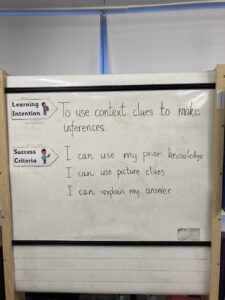 Learning
Intention
To use context clues to make
inferences.
Success
Criteria
I can use my prior knowledge
I can use picture clues
I can explain my answer